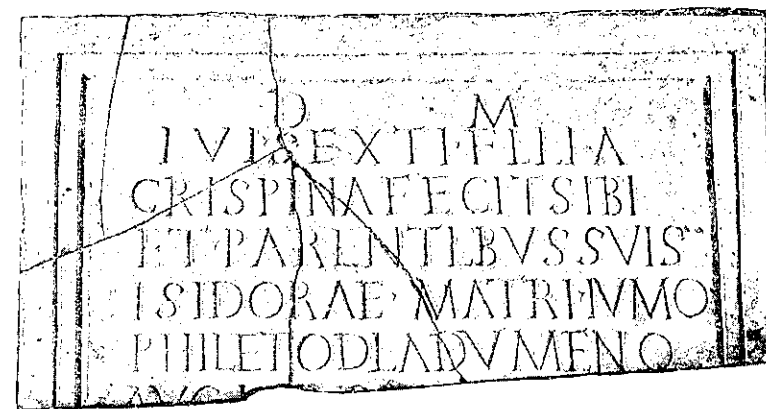 D M
FILIA
CRISPINA FECIT SIBI
ET PARENTIBVS SVIS
ISIDORAE MATRI
PHILETO DIADVMENO